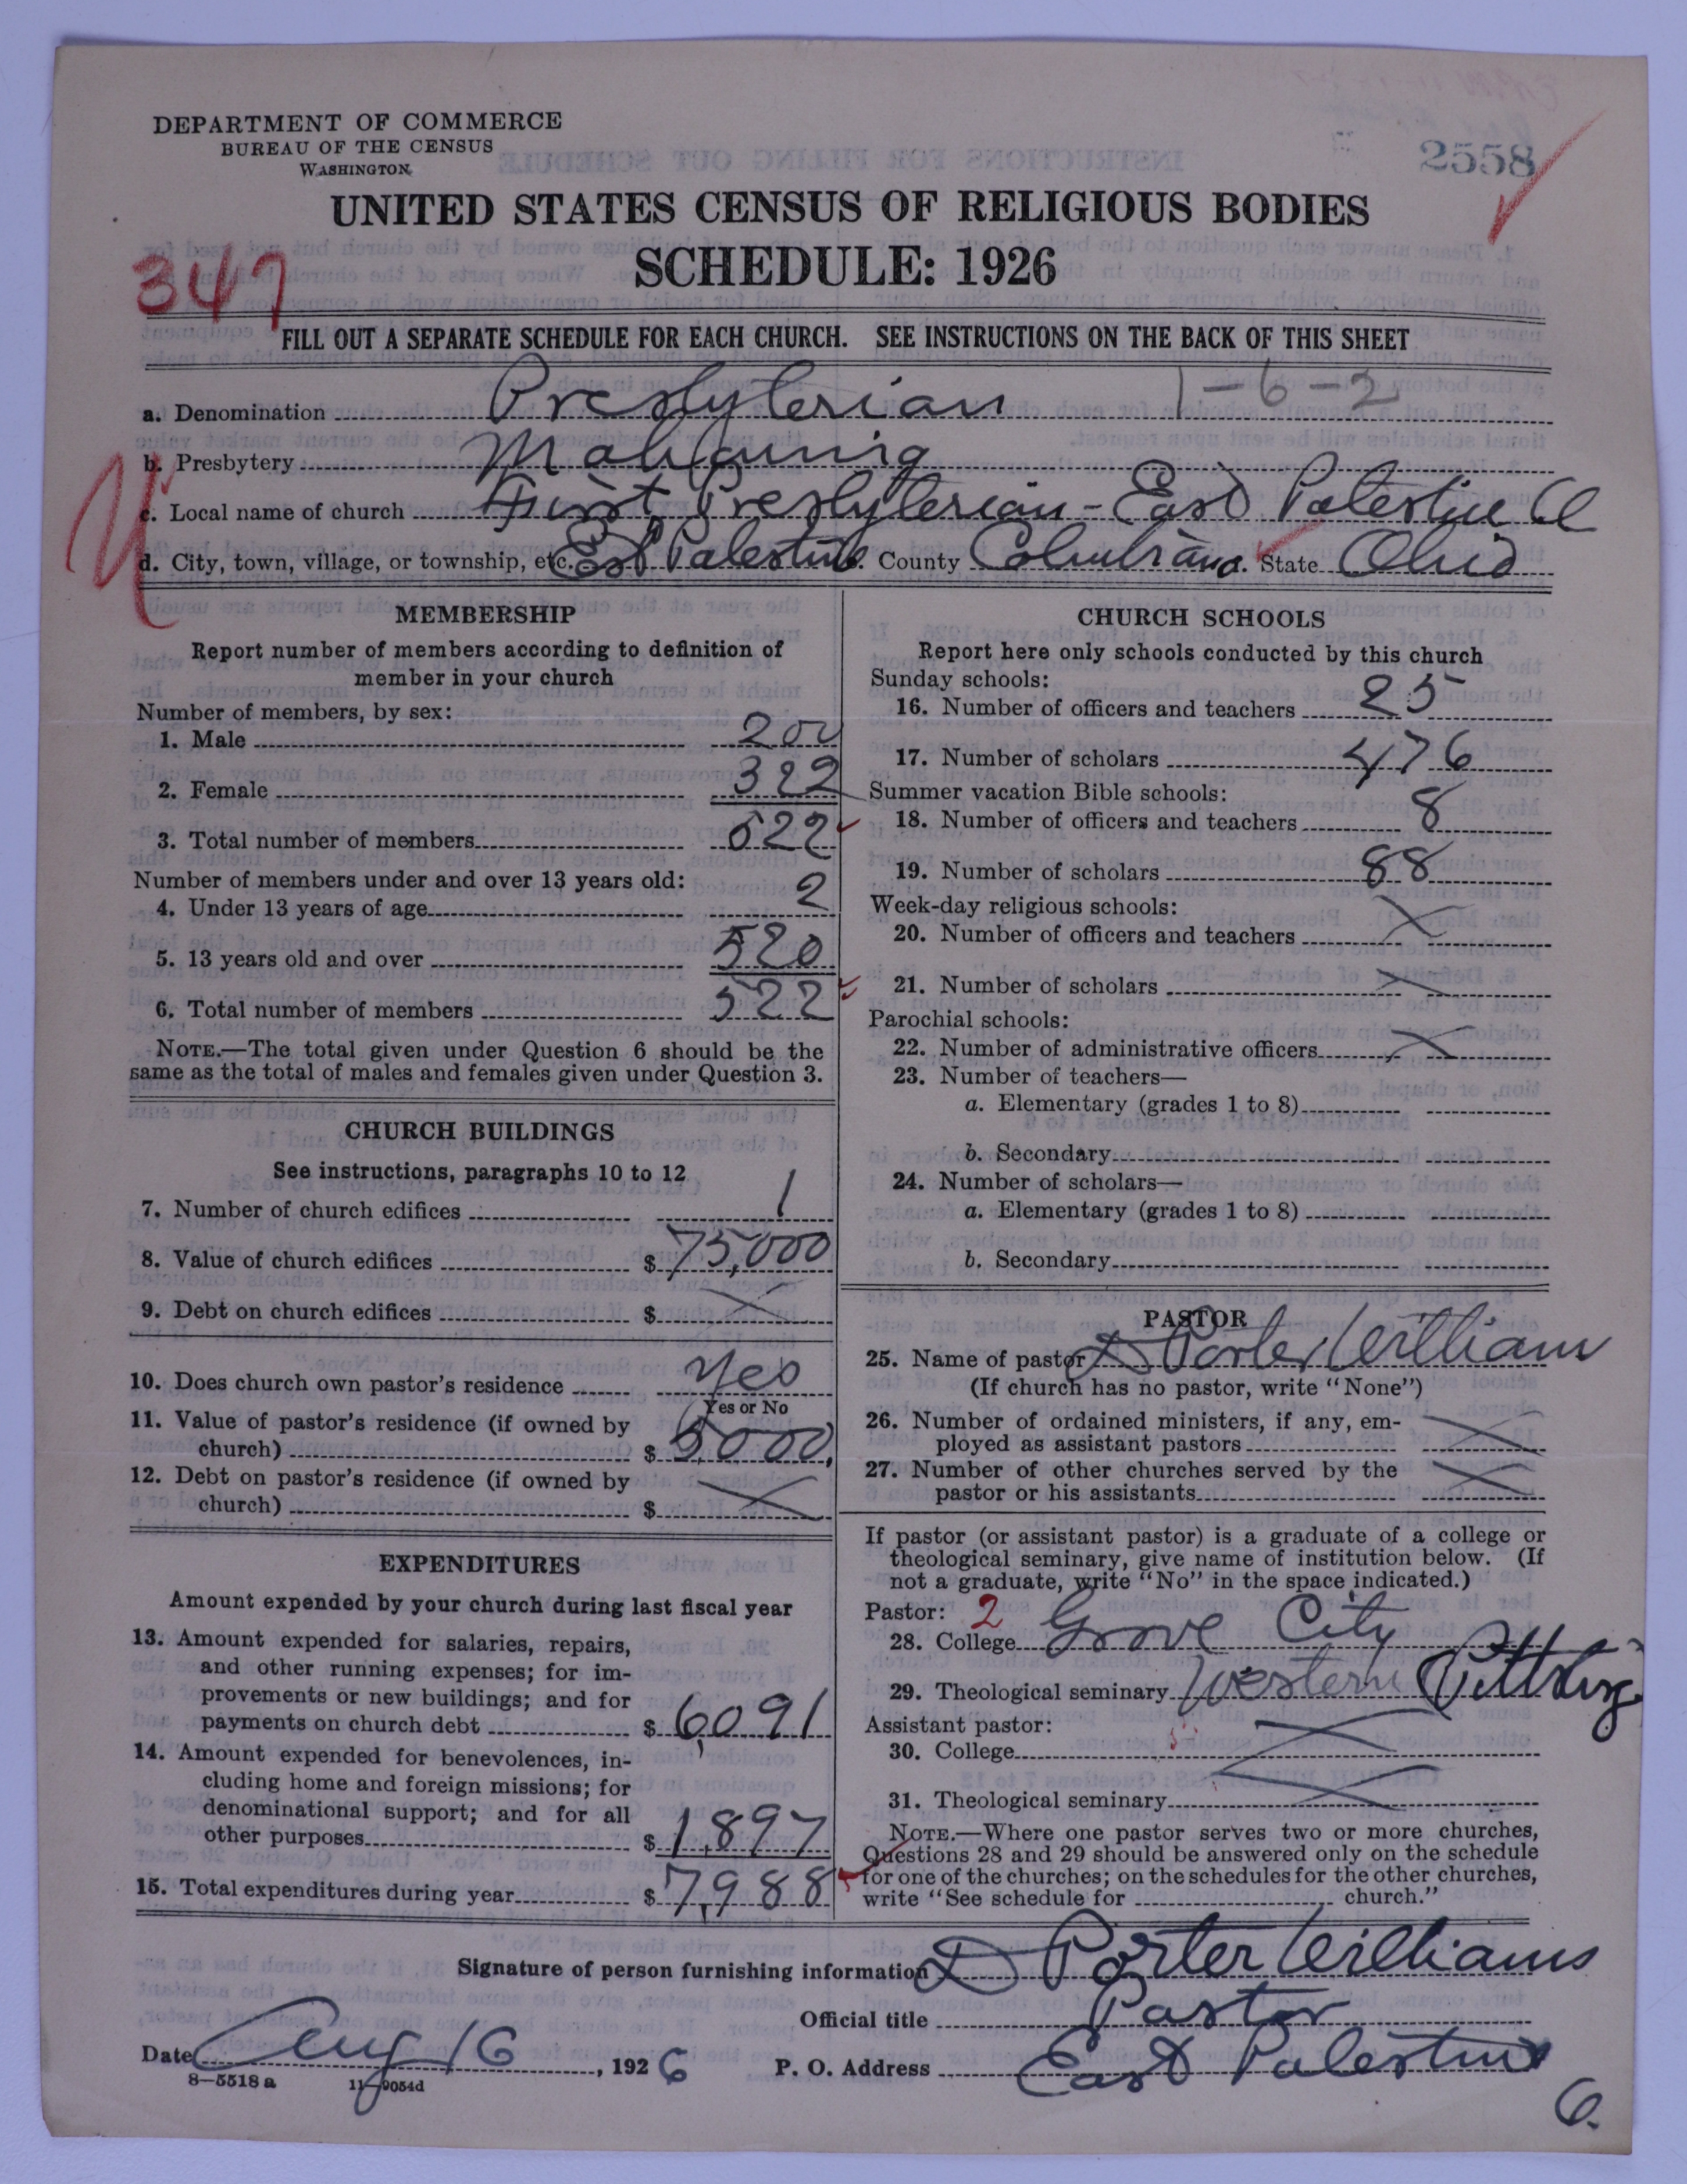 DEPARTMENT OF COMMERCE
BUREAU OF THE CENSUS
WASHINGTON
2558
UNITED STATES CENSUS OF RELIGIOUS BODIES
SCHEDULE: 1926
347
FILL OUT A SEPARATE SCHEDULE FOR EACH CHURCH. SEE INSTRUCTIONS ON THE BACK OF THIS SHEET
a. Denomination Presbyterian 1-6-2
b. Presbytery Mahoning
c. Local name of church First Presbyterian - East Palestine
d. City, town, village, or township, etc. East Palestine. County Columbiana. State Ohio
MEMBERSHIP
Report number of members according to definition of
member in your church
Number of members, by sex:
1. Male 200
2. Female 322
3. Total number of members 522
Number of members under and over 13 years old:
4. Under 13 years of age 2
5. 13 years old and over 520
6. Total number of members 522
NOTE.—The total given under Question 6 should be the
same as the total of males and females given under Question 3.
CHURCH BUILDINGS
See instructions, paragraphs 10 to 12
7. Number of church edifices 1
8. Value of church edifices $ 75,000
9. Debt on church edifices $
10. Does church own pastor's residence Yes
Yes or No
11. Value of pastor's residence (if owned by
church) $ 5000
12. Debt on pastor's residence (if owned by
church) $
EXPENDITURES
Amount expended by your church during last fiscal year
13. Amount expended for salaries, repairs,
and other running expenses; for im-
provements or new buildings; and for
payments on church debt $ 6,091
14. Amount expended for benevolences, in-
cluding home and foreign missions; for
denominational support; and for all
other purposes $ 1,897
15. Total expenditures during year $ 7,988
CHURCH SCHOOLS
Report here only schools conducted by this church
Sunday schools:
16. Number of officers and teachers 25
17. Number of scholars 476
Summer vacation Bible schools:
18. Number of officers and teachers 8
19. Number of scholars 88
Week-day religious schools:
20. Number of officers and teachers
21. Number of scholars
Parochial schools:
22. Number of administrative officers
23. Number of teachers—
a. Elementary (grades 1 to 8)
b. Secondary
24. Number of scholars—
a. Elementary (grades 1 to 8)
b. Secondary
PASTOR
25. Name of pastor D Porter William
(If church has no pastor, write "None")
26. Number of ordained ministers, if any, em-
ployed as assistant pastors
27. Number of other churches served by the
pastor or his assistants
If pastor (or assistant pastor) is a graduate of a college or
theological seminary, give name of institution below. (If
not a graduate, write "No" in the space indicated.)
Pastor: 2
28. College Grove City
29. Theological seminary Western Pittsburg
Assistant pastor:
30. College
31. Theological seminary
NOTE.—Where one pastor serves two or more churches,
Questions 28 and 29 should be answered only on the schedule
for one of the churches; on the schedules for the other churches,
write "See schedule for church."
Signature of person furnishing information D Porter Williams
Official title Pastor
Date Aug 16, 1926 P. O. Address East Palestine
8-5518 a 11-9054d
O.